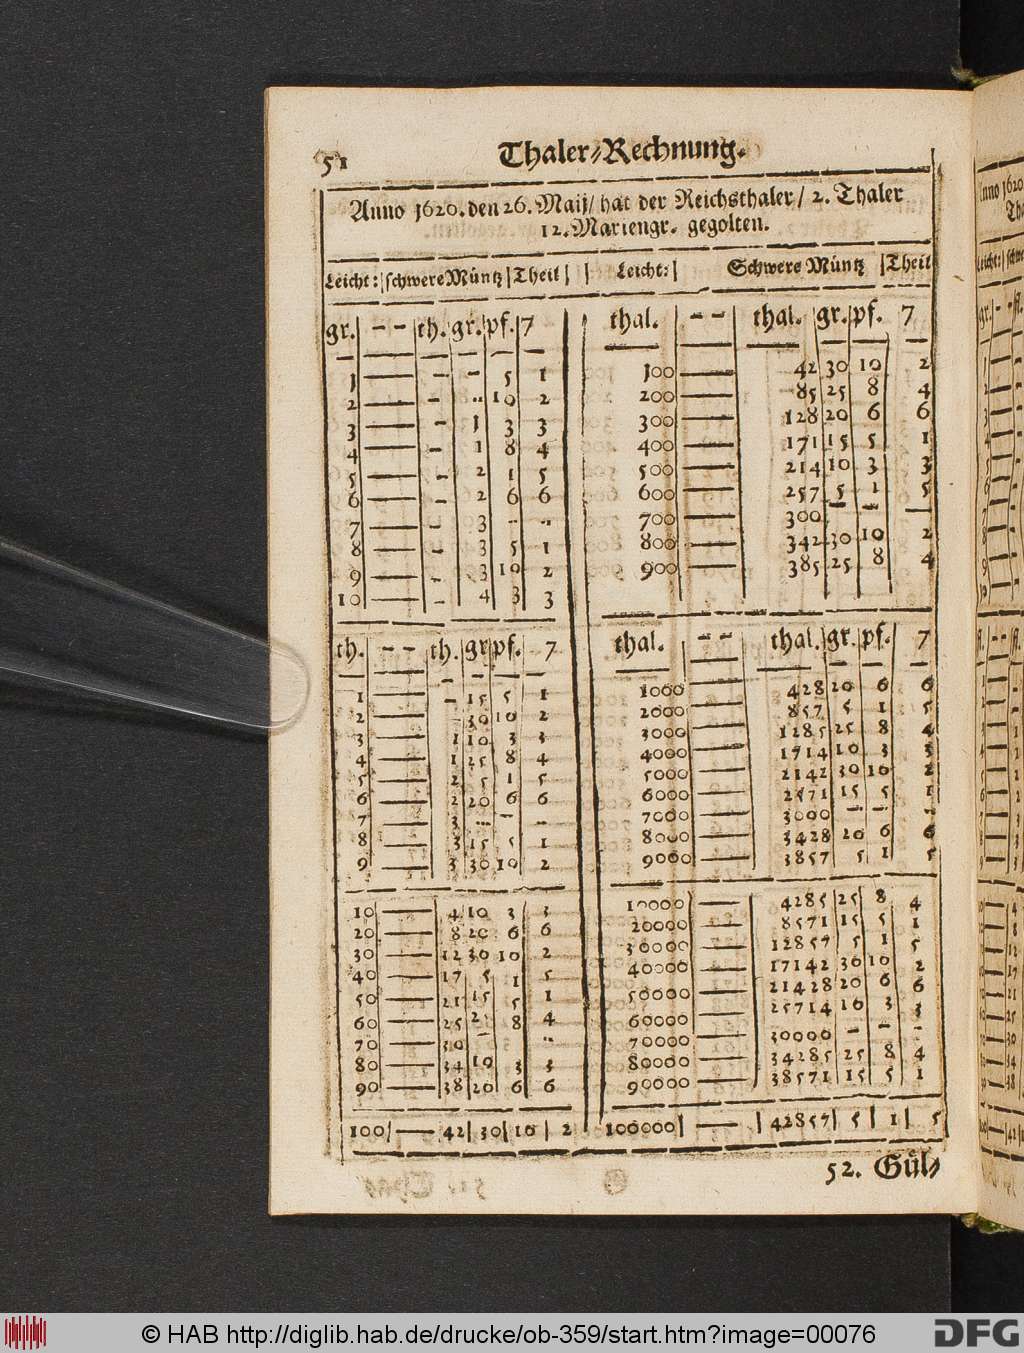 51 Thaler⸗Rechnung.
Anno 1620. den 26. Maij/ hat der Reichsthaler/ 2. Thaler
12. Mariengr. gegolten.
Leicht: schwere Müntz Theil
gr. -- th. gr. pf. 7
1 — - - 5 1
2 — - - 10 2
3 — - 1 3 3
4 — - 1 8 4
5 — - 2 1 5
6 — - 2 6 6
7 — - 3 - -
8 — - 3 5 1
9 — - 3 10 2
10 — - 4 3 3
th. -- th. gr pf. 7
1 — - 15 5 1
2 — - 30 10 2
3 — 1 10 3 3
4 — 1 25 8 4
5 — 2 5 1 5
6 — 2 20 6 6
7 — 3 - - -
8 — 3 15 5 1
9 — 3 30 10 2
10 — 4 10 3 3
20 — 8 20 6 6
30 — 12 30 10 2
40 — 17 5 1 5
50 — 21 15 5 1
60 — 25 8 4
70 — 30 - -
80 — 34 10 3 3
90 — 38 20 6 6
100 — 42 30 10 2
Leicht: Schwere Müntz Theil
thal. -- thal. gr. pf. 7
100 — 42 30 10 2
200 — 85 25 8 4
300 — 128 20 6 6
400 — 171 15 5 1
500 — 214 10 3 3
600 — 257 5 1 5
700 — 300 - - —
800 — 342 30 10 2
900 — 385 25 8 4
thal. -- thal. gr. pf. 7
1000 — 428 20 6 6
2000 — 857 5 1 5
3000 — 1285 25 8 4
4000 — 1714 10 3 3
5000 — 2142 30 10 2
6000 — 2571 15 5 1
7000 — 3000 - - -
8000 — 3428 20 6 6
9000 — 3857 5 1 5
10000 — 4285 25 8 4
20000 — 8571 15 5 1
30000 — 12857 5 1 5
40000 — 17142 30 10 2
50000 — 21428 20 6 6
60000 — 25714 10 3 3
70000 — 30000 - - -
80000 — 34285 25 8 4
90000 — 38571 15 5 1
100000 — 42857 5 1 5
52. Gül⸗
© HAB http://diglib.hab.de/drucke/ob-359/start.htm?image=00076
DFG